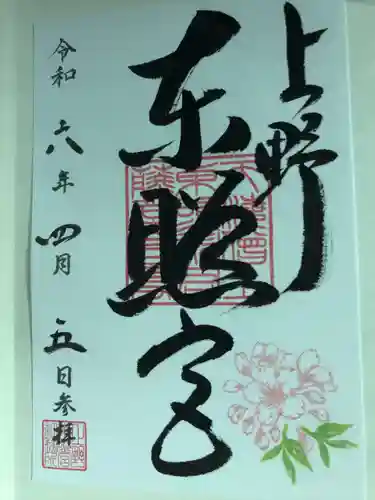 上野
東照宮
令和六年四月五日参拝